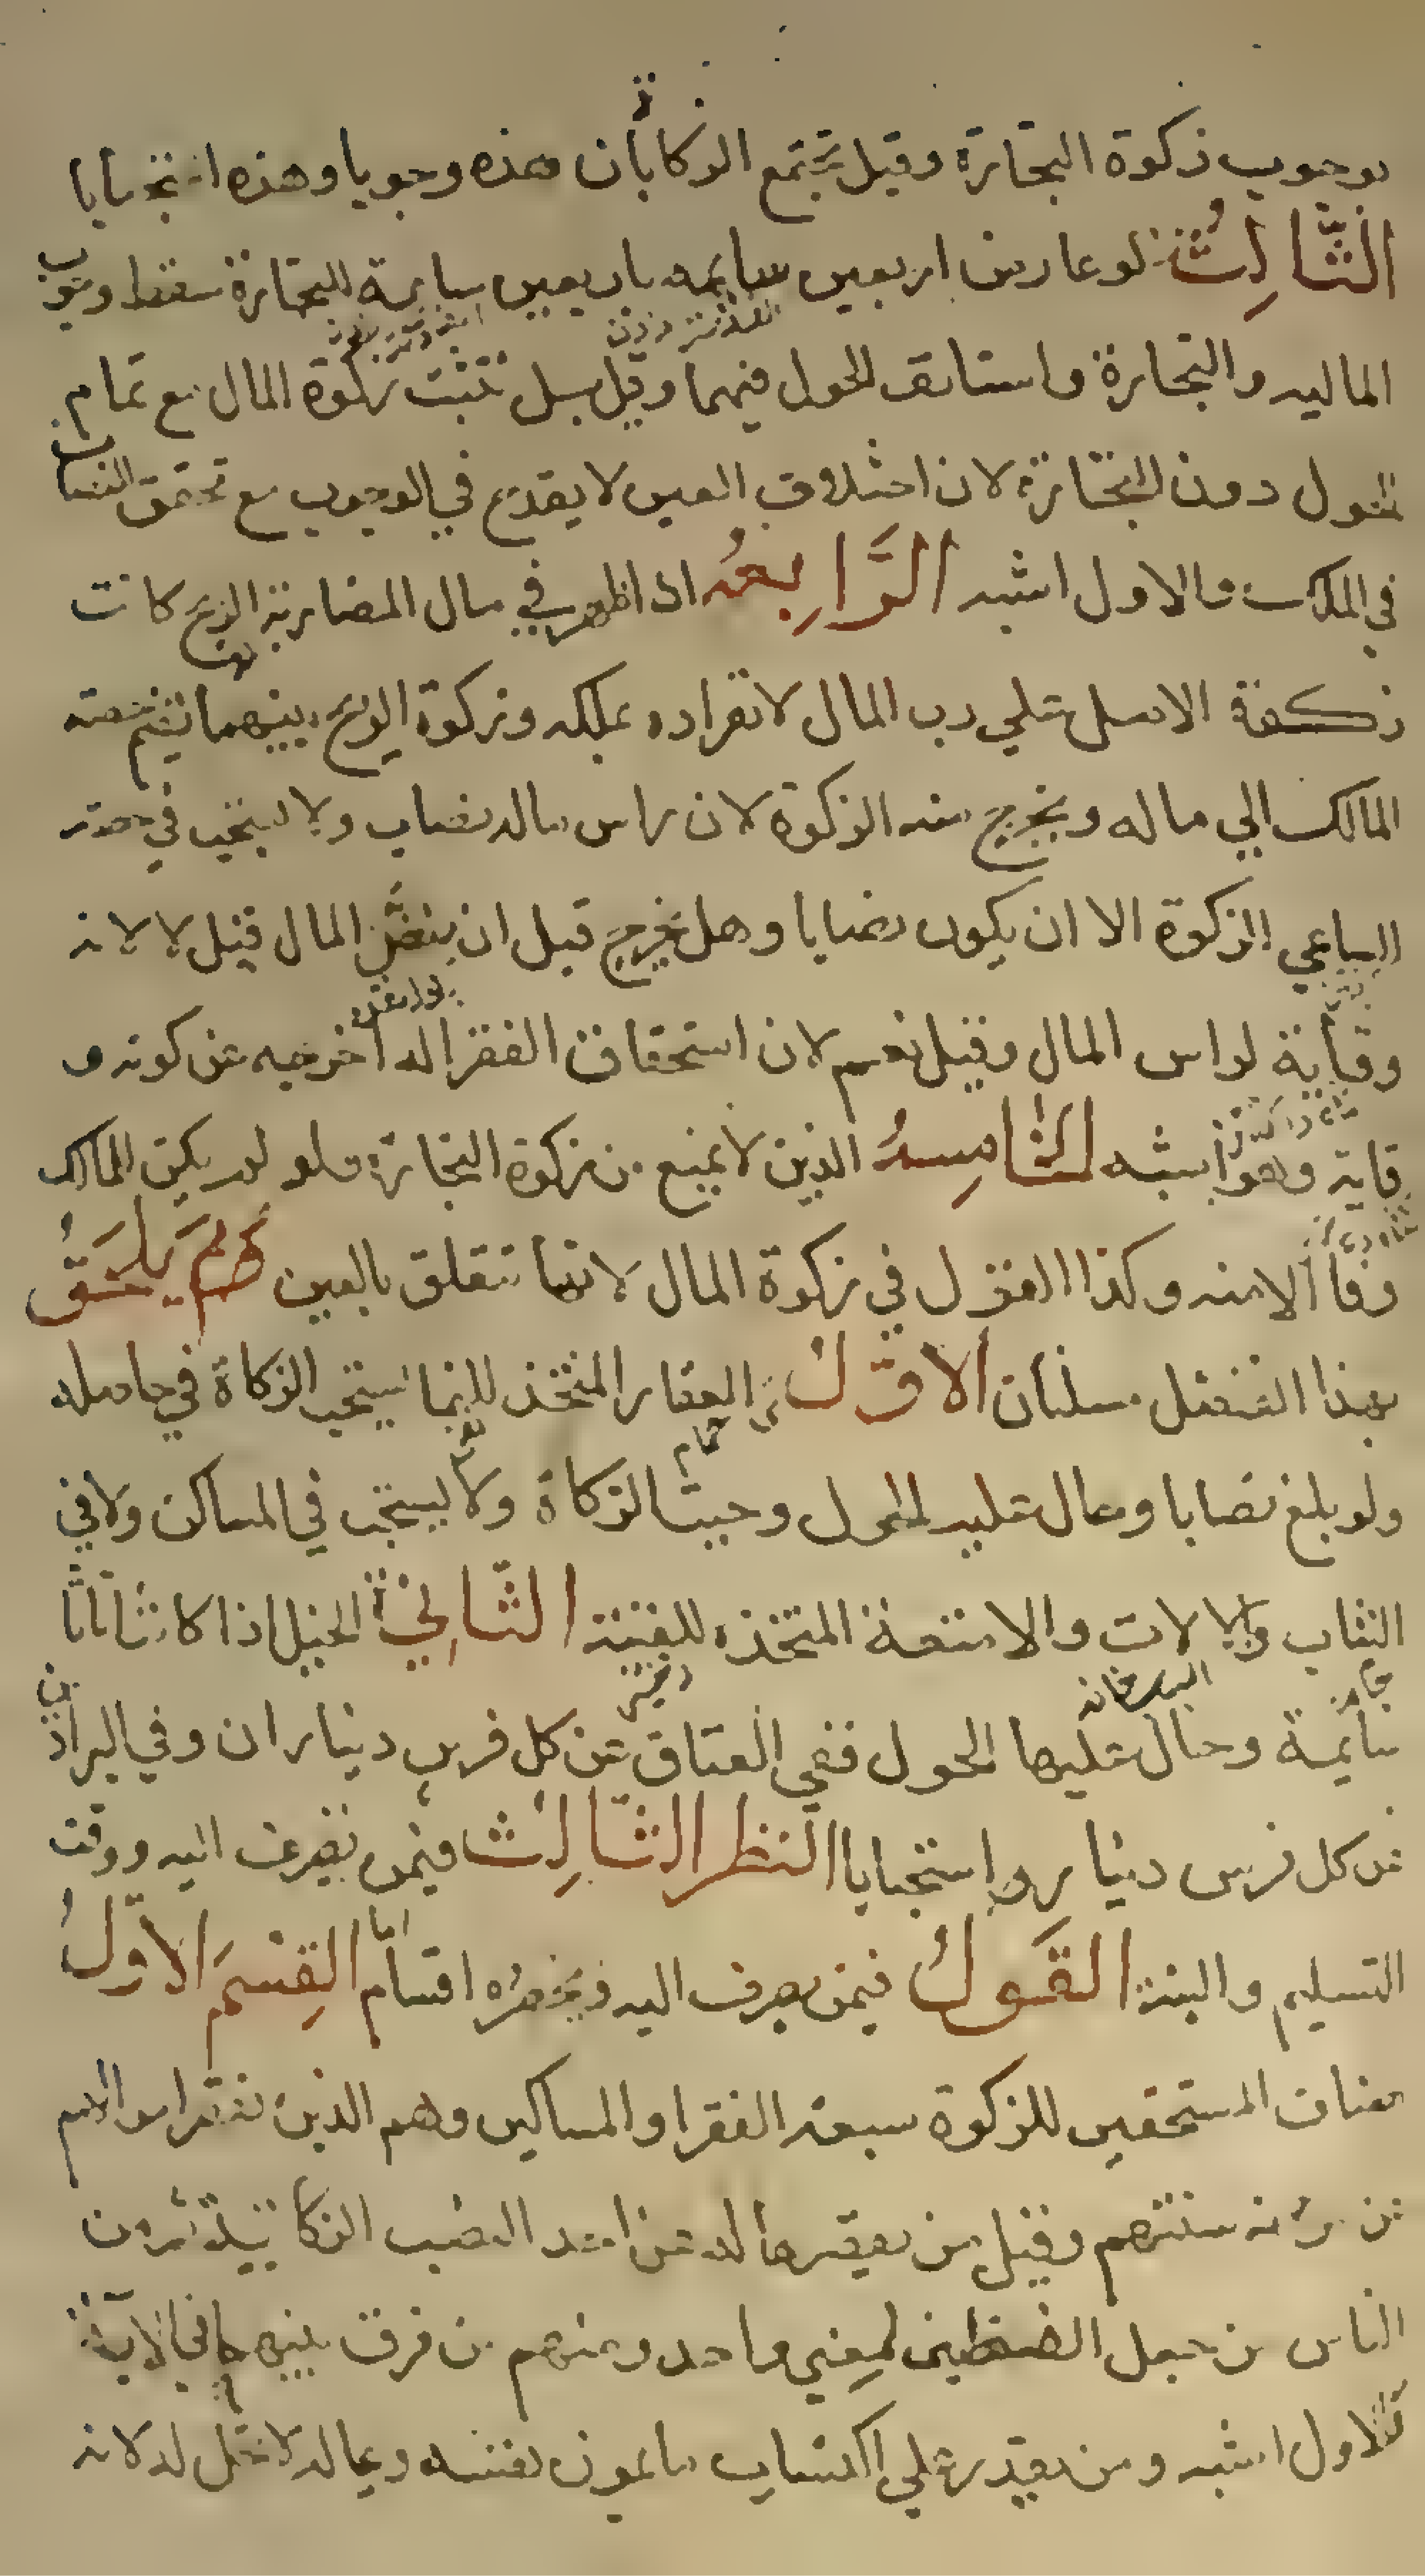 بوجوب زكوة التجارة وقيل تجتمع الزكاتان هذه وجوبا وهذه استحبابا
الثَّالِثُة لو عارض اربعين سايمه باربعين سايمة للتجارة سقط وجوب
الماليه والتجارة واستانف الحول فيهما وقيل بل تثبت زكوة المال مع تمام
الحول دون التجارة لان اختلاف العين لا يقدح في الوجوب مع تحقق النصاب
في الملك والاول اشبه الرَّابِعهُ اذا ظهر في مال المضاربة الربح كانت
زكوة الاصل علي رب المال لانفراده بملكه وزكوة الربح بينهما يضم حصته
المالك الي ماله ويخرج منه الزكوة لان راس ماله نصاب ولا يستحب في حصة
الساعي الزكوة الا ان يكون نصابا وهل يخرج قبل ان ينض المال قيل لا لانه
وقاية لراس المال وقيل نعم لان استحقاق الفقرا له اخرجه عن كونه و
قاية وهو اشبه الخَامِسهُ الدين لا يمنع من زكوة التجارة ولو لم يكن المالك
وفا الا منه وكذا القول في زكوة المال لانها تتعلق بالعين ثم يلحَقُ
بهذا الفصل مسلتان الاوّلُ العقار المتخذ للنما يستحب الزكاة في حاصله
ولو بلغ نصابا وحال عليه الحول وجبت الزكاة ولا يستحب في المساكن ولا في
الثياب والالات والامتعة المتخذه للقنية الثّانِي الخيل اذا كانت اناثا
سايمة وحال عليها الحول ففي العتاق عن كل فرس ديناران وفي البراذين
عن كل فرس دينار استحبابا النظر الثّالِث فيمن تصرف اليه ووقت
التسليم والنية القَولُ فيمن يصرف اليه ويحصره اقسام القِسْمَ الاوّلُ
اصناف المستحقين للزكوة سبعة الفقرا والمساكين وهم الذين تقصر اموالهم
عن مؤنة سنتهم وقيل من يقصر ماله عن احد النصب الزكاتية ثم من
الناس من جعل اللفظين لمعني واحد ومنهم من فرق بينهما في الاية
والاول اشبه ومن يقدر علي اكتساب ما يمون نفسه وعياله لا تحل له لانه